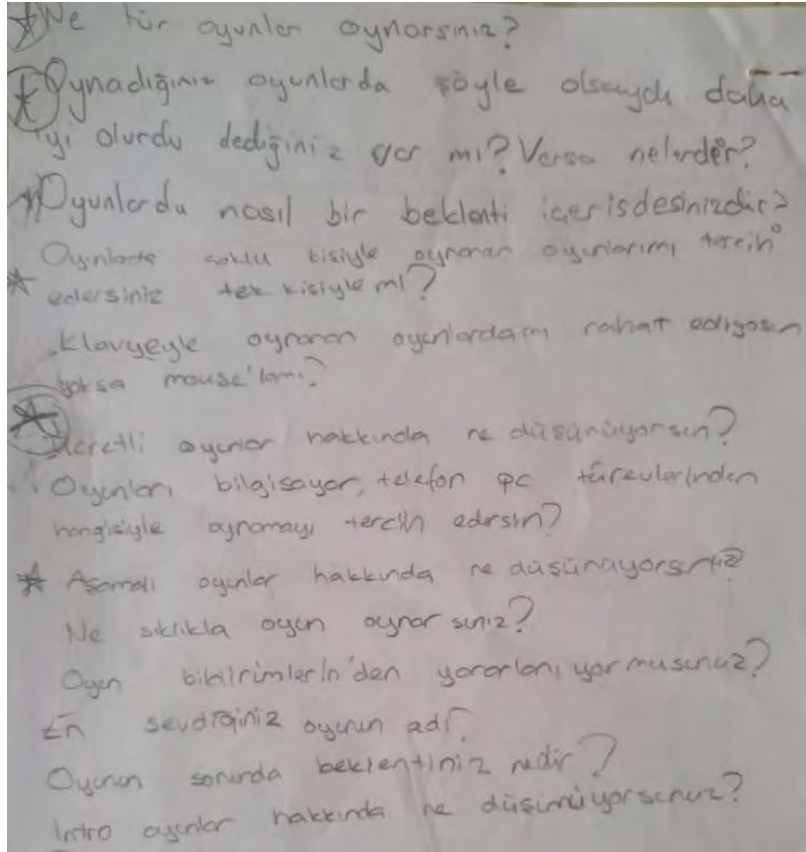 Ne tür oyunlar oynarsınız?
Oynadığınız oyunlarda şöyle olsaydı daha
iyi olurdu dediğiniz var mı? Varsa nelerdir?
Oyunlarda nasıl bir beklenti içerisdesinizdir?
Oyunlarda çoklu kişiyle oynanan oyunlarımı tercih
edersiniz tek kişiyle mi?
Klavyeyle oynanan oyunlardamı rahat ediyosun
yoksa mouse'lamı?
Ücretli oyunlar hakkında ne düşünüyorsun?
Oyunları bilgisayar, telefon pc türevlerinden
hangisiyle oynamayı tercih edersin?
Aşamalı oyunlar hakkında ne düşünüyorsunuz?
Ne sıklıkla oyun oynarsınız?
Oyun bildirimlerin'den yararlanıyormusunuz?
En sevdiğiniz oyunun adı?
Oyunun sonunda beklentiniz nedir?
Intro oyunlar hakkında ne düşünüyorsunuz?